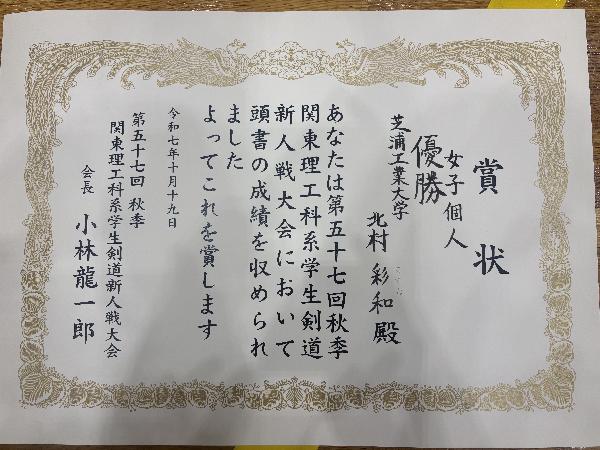 賞状
女子個人
優勝
芝浦工業大学
北村彩和殿
あなたは第五十七回秋季
関東理工科系学生剣道
新人戦大会において
頭書の成績を収められ
ました
よってこれを賞します
令和七年十月十九日
第五十七回 秋季
関東理工科系学生剣道新人戦大会
会長 小林龍一郎